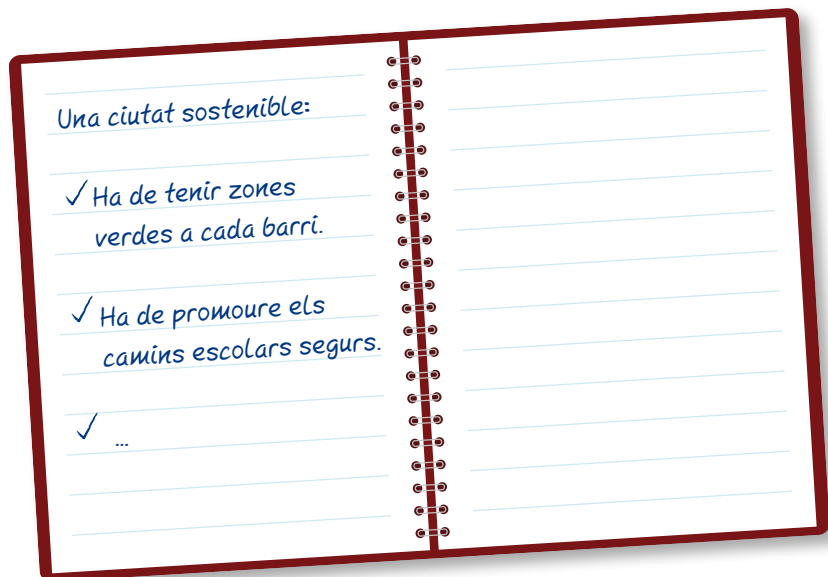 Una ciutat sostenible:
✓ Ha de tenir zones
verdes a cada barri.
✓ Ha de promoure els
camins escolars segurs.
✓ ...